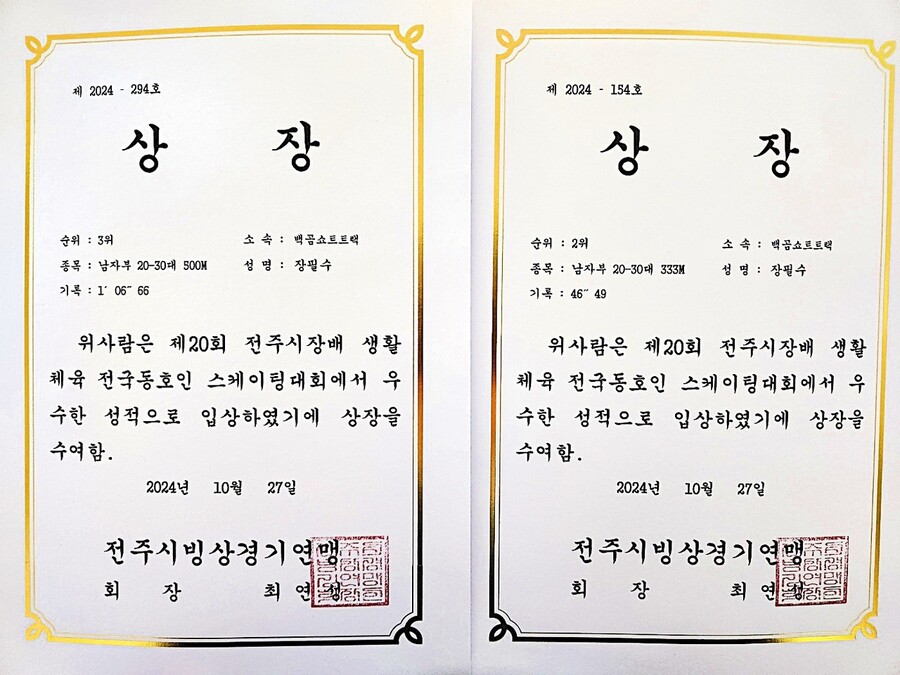 제 2024 - 294호
상 장
순위 : 3위
소 속 : 백곰쇼트트랙
종목 : 남자부 20-30대 500M
성 명 : 장필수
기록 : 1′ 06″ 66
위사람은 제20회 전주시장배 생활
체육 전국동호인 스케이팅대회에서 우
수한 성적으로 입상하였기에 상장을
수여함.
2024년 10월 27일
전주시빙상경기연맹
회 장 최 연
제 2024 - 154호
상 장
순위 : 2위
소 속 : 백곰쇼트트랙
종목 : 남자부 20-30대 333M
성 명 : 장필수
기록 : 46″ 49
위사람은 제20회 전주시장배 생활
체육 전국동호인 스케이팅대회에서 우
수한 성적으로 입상하였기에 상장을
수여함.
2024년 10월 27일
전주시빙상경기연맹
회 장 최 연